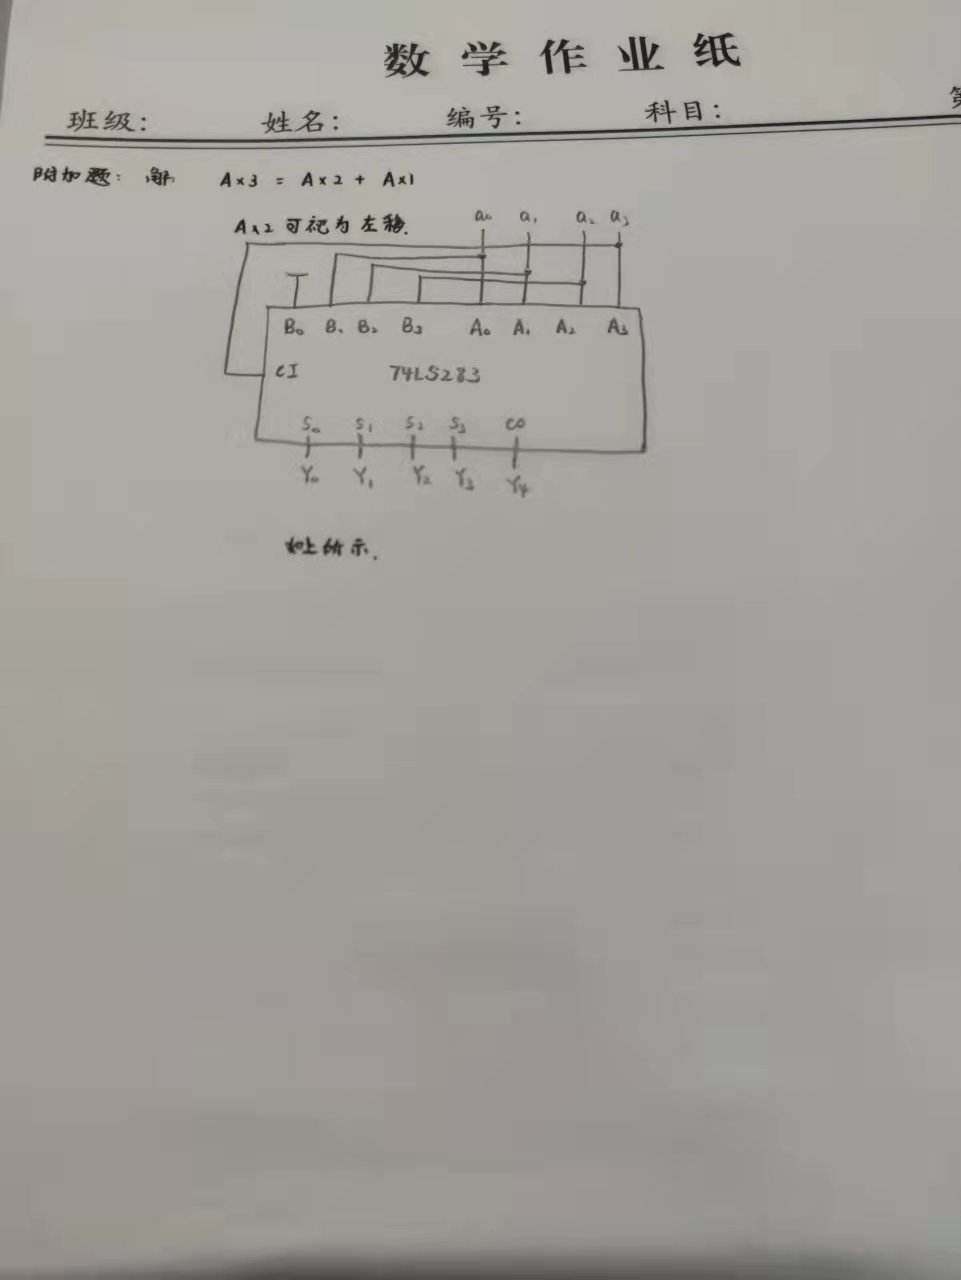 数学作业纸
班级: 姓名: 编号: 科目: 第
附加题: 解: A×3 = A×2 + A×1
A×2 可视为左移.
a₀ a₁ a₂ a₃
B₀ B₁ B₂ B₃ A₀ A₁ A₂ A₃
CI 74LS283
S₀ S₁ S₂ S₃ CO
Y₀ Y₁ Y₂ Y₃ Y₄
如上所示.